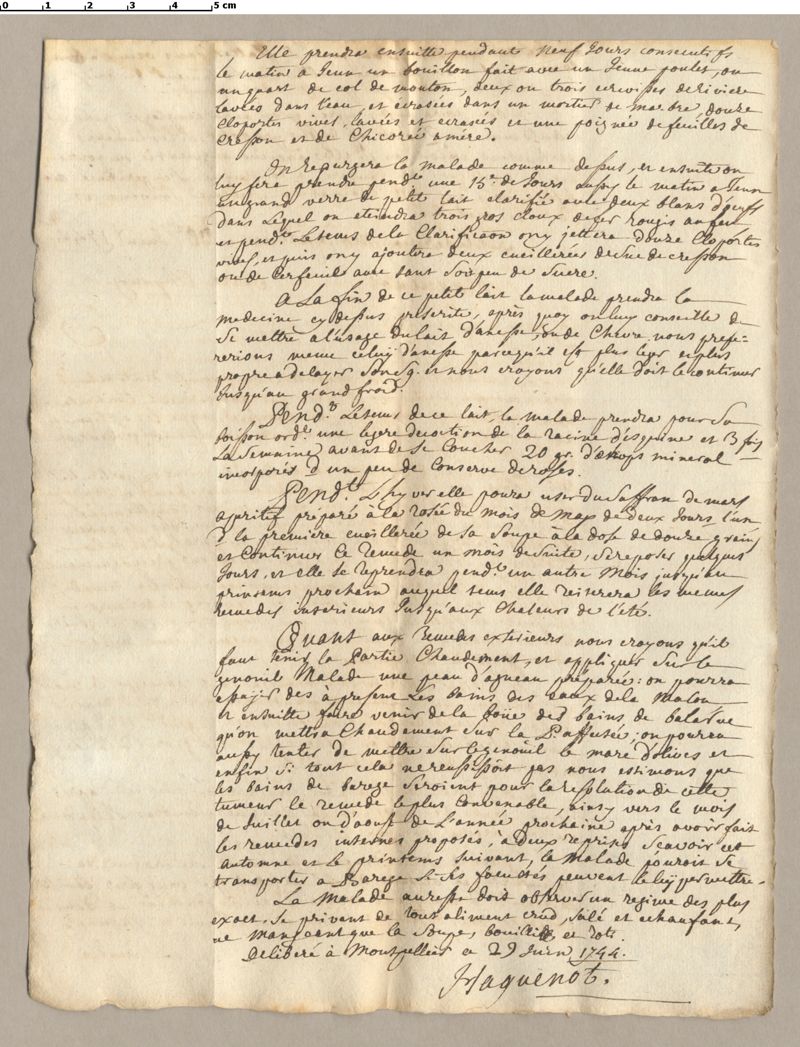 0 1 2 3 4 5 cm
Elle prendra ensuitte pendant neuf Jours consecutifs
le matin a Jeun un bouillon fait avec un Jeune poulet, ou
un quart de col de mouton, deux ou trois ecrevisses de riviere
lavées dans l'eau, et ecrasées dans un mortier de marbre, douze
Cloportes vives, lavées et ecrasés et une poignée de feuilles de
Cresson et de Chicorée amére.
On repurgera la malade comme dessus, et ensuite on
luy fera prendre pendt. une 15e. de Jours aussy le matin a Jeun
un grand verre de petit lait clarifié avec deux blans d'œufs
dans lequel on eteindra trois gros cloux de fer rougis au feu
et pendt. le tems de la Clarificaon on y jettera douze Cloportes
vives, et puis on y ajoutera deux cueillerées de suc de cresson
ou de Cerfeuil avec tant soit peu de sucre.
A La fin de ce petit lait la malade prendra la
medecine cy dessus prescrite, après quoy on luy conseille de
se mettre a l'usage du lait d'anesse, ou de Chevre, nous prefe-
rerions meme celuy d'anesse parcequ'il est plus léger et plus
propre a delayer son sg. et nous croyons qu'elle doit le continuer
Jusqu'au grand froid.
Pendt. Le tems de ce lait, la malade prendra pour sa
boisson ordre. une legere decoction de la racine d'esquine et 3 fois
La Semaine avant de se Coucher 20 gr. d'æthiops mineral
incorporés d un peu de Conserve de roses.
Pendt. L'hyver elle poura user du Saffran de mars
aperitif préparé à la rosée du mois de May de deux Jours l'un
d la premiere cueillerée de sa Soupe à la dose de douze grains
et Continuer Ce remede un mois de suite, se reposer quelques
Jours, et elle le reprendra pendt. un autre Mois jusqu'au
printems prochain auquel tems elle reiterera les memes
remedes interieurs Jusqu'aux Chaleurs de l'été.
Quant aux Remedes exterieurs nous croyons qu'il
faut tenir la Partie Chaudement, et appliquer sur le
genouil Malade une peau d'agneau préparée: on pourra
essayer des à present Les bains des eaux de la Malou
et ensuitte faire venir de la boüe des bains de balaruc
qu'on mettra Chaudement sur la P. affectée; on pourra
aussy tenter de mettre sur le genouil le marc d'olives et
enfin si tout cela ne reussissoit pas nous estimons que
les bains de barege seroient pour la resolution de cette
tumeur le remede le plus Convenable, ainsy vers le mois
de Juillet ou d'aoust de L'année prochaine après avoir fait
les remedes internes proposés, à deux reprises scavoir cet
automne et le printems suivant, la Malade pouroit se
transporter a Barege si ses facultés peuvent le luy permettre.
La Malade au reste doit observer un regime des plus
exact, se privant de tout aliment crud, salé et echaufant,
ne mangeant que la soupe, bouillis et roti.
Deliberé à Montpellier ce 29 Juin 1744.
Haguenot.